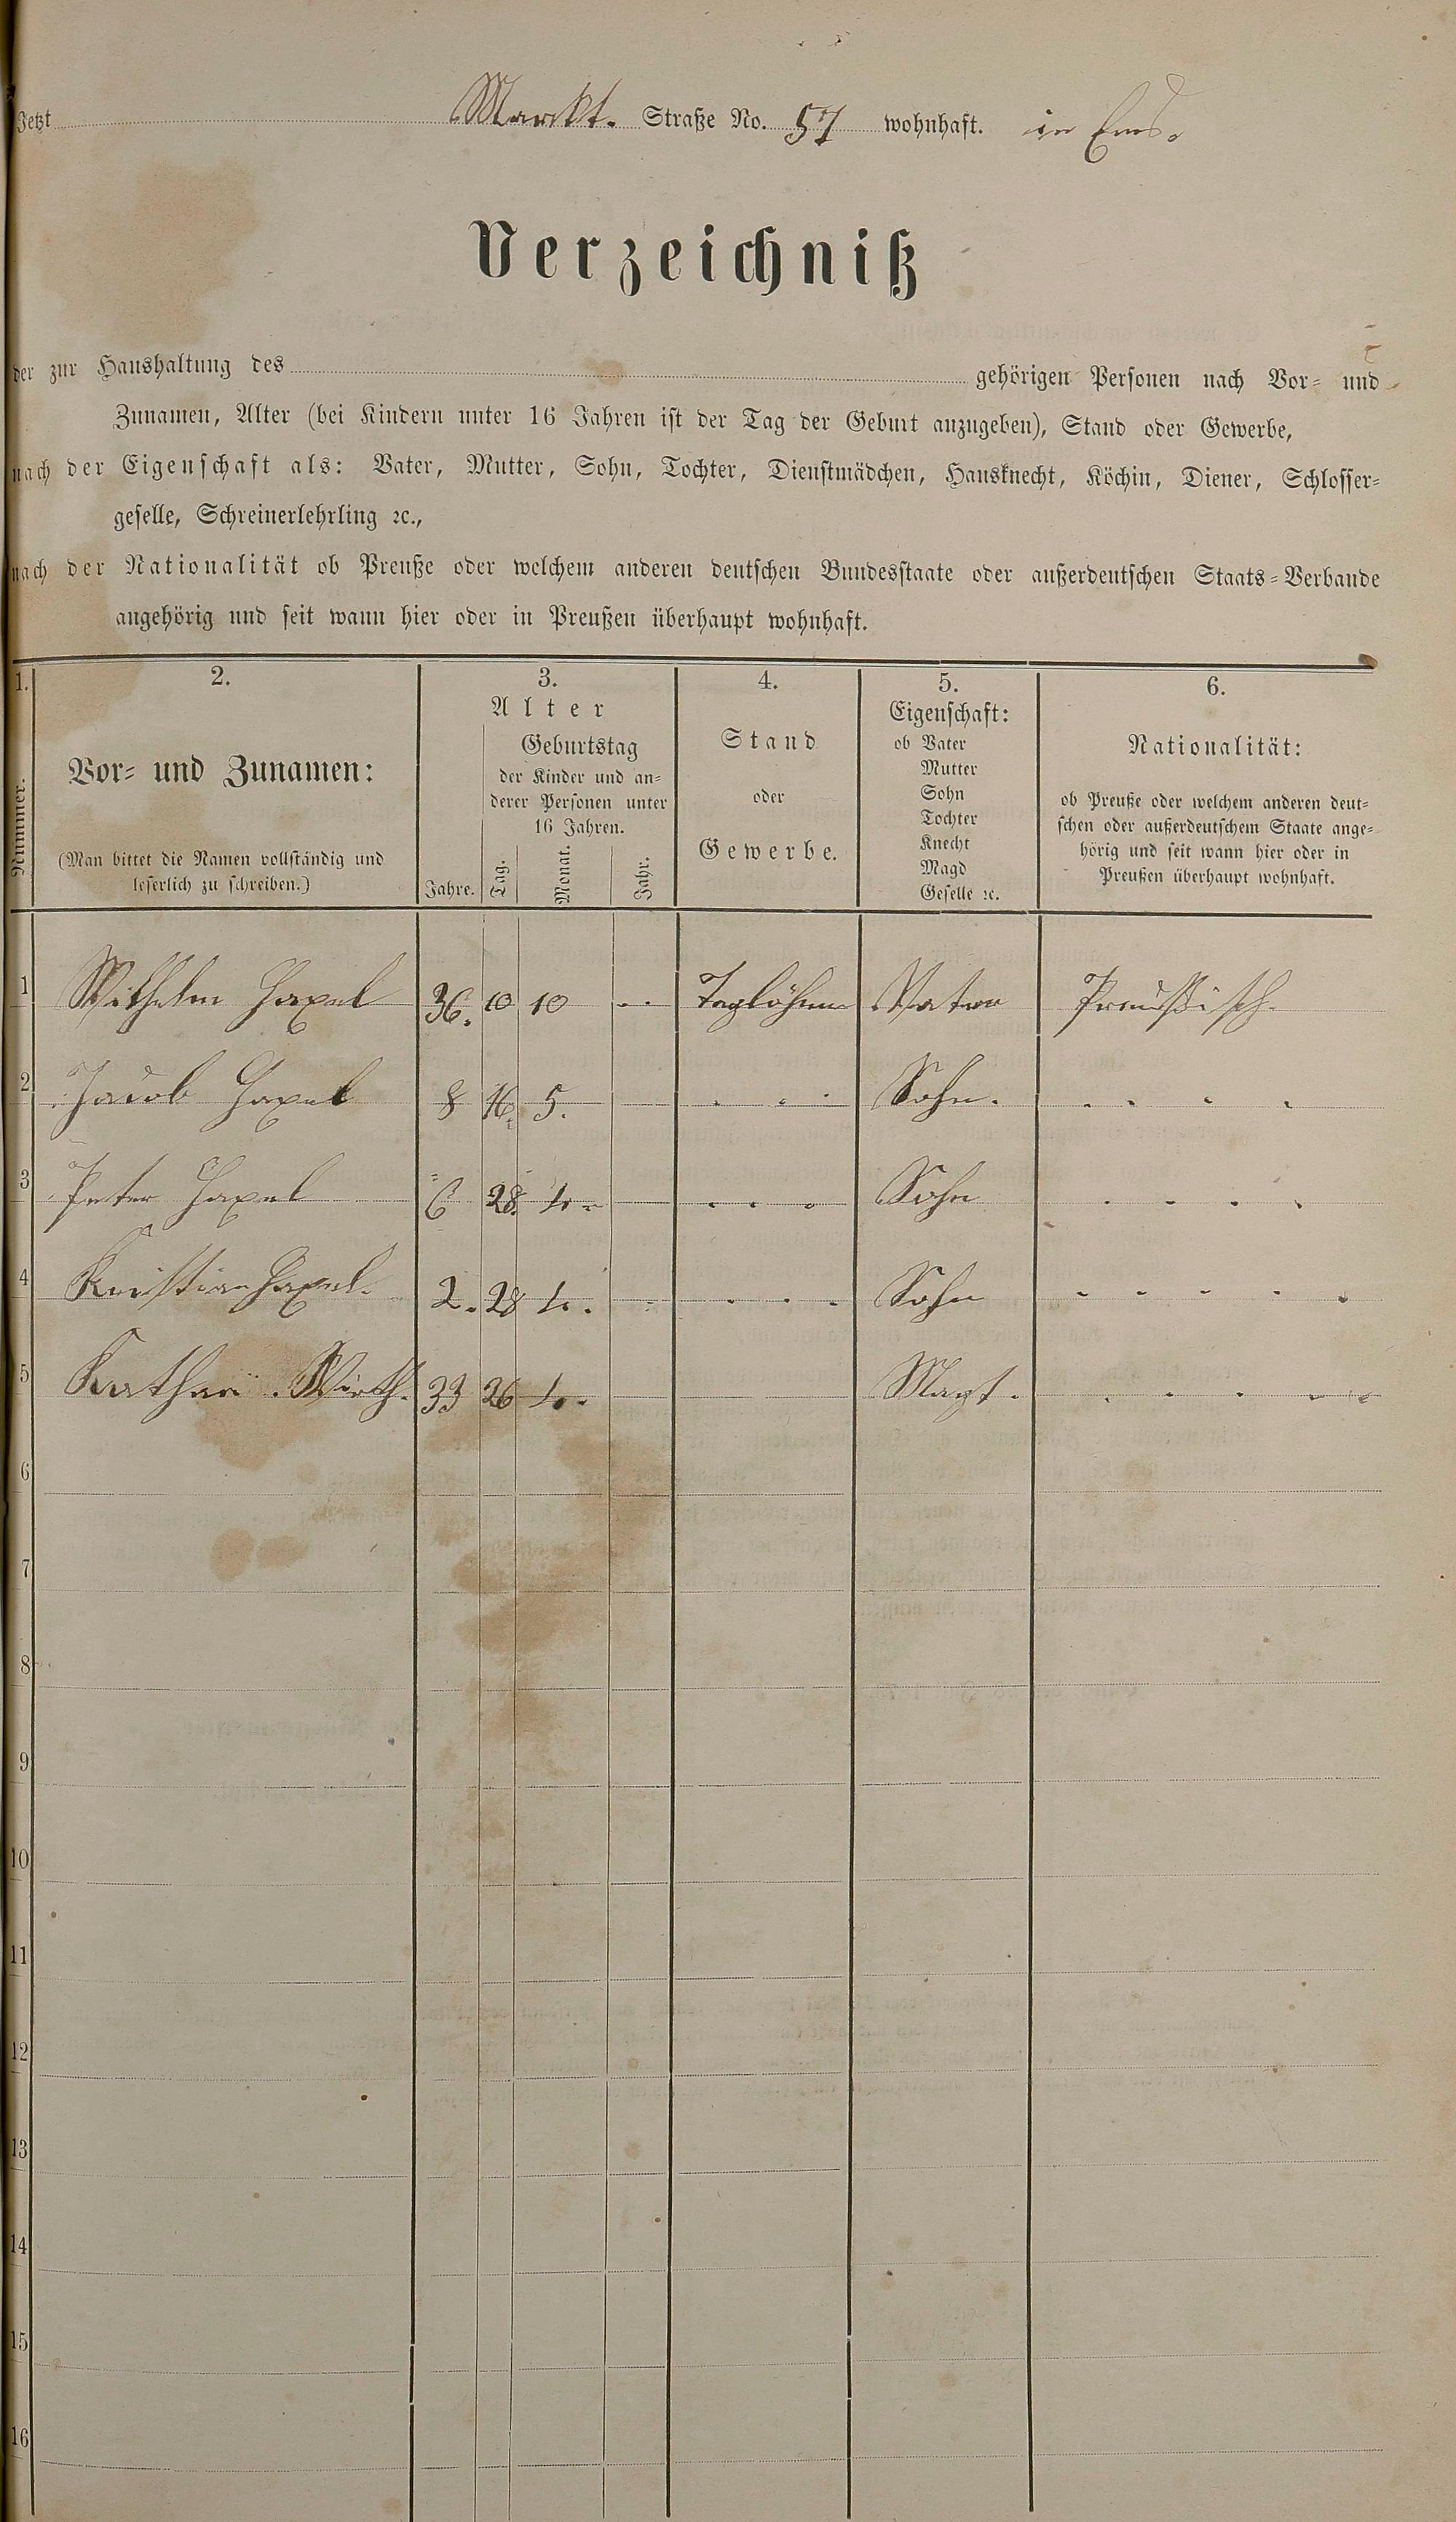 Jetzt Markt. Straße No. 57 wohnhaft. in Ems.
Verzeichniß
der zur Haushaltung des gehörigen Personen nach Vor- und
Zunamen, Alter (bei Kindern unter 16 Jahren ist der Tag der Geburt anzugeben), Stand oder Gewerbe,
nach der Eigenschaft als: Vater, Mutter, Sohn, Tochter, Dienstmädchen, Hausknecht, Köchin, Diener, Schlosser-
geselle, Schreinerlehrling ꝛc.,
nach der Nationalität ob Preuße oder welchem anderen deutschen Bundesstaate oder außerdeutschen Staats-Verbande
angehörig und seit wann hier oder in Preußen überhaupt wohnhaft.
1.
Nummer.
2.
Vor- und Zunamen:
(Man bittet die Namen vollständig und
leserlich zu schreiben.)
3.
Alter
Jahre.
Geburtstag
der Kinder und an-
derer Personen unter
16 Jahren.
Tag. Monat. Jahr.
4.
Stand
oder
Gewerbe.
5.
Eigenschaft:
ob Vater
Mutter
Sohn
Tochter
Knecht
Magd
Geselle ꝛc.
6.
Nationalität:
ob Preuße oder welchem anderen deut-
schen oder außerdeutschem Staate ange-
hörig und seit wann hier oder in
Preußen überhaupt wohnhaft.
1 Wilhelm 36. 10 10 Taglöhner Vater Preußisch.
2 Jacob 8 16. 5. Sohn.
3 Peter 6 28. 4. Sohn
4 Kristian 2. 28 4. Sohn
5 Kathari. Wirth. 33 26 4. Magt.
6
7
8
9
10
11
12
13
14
15
16